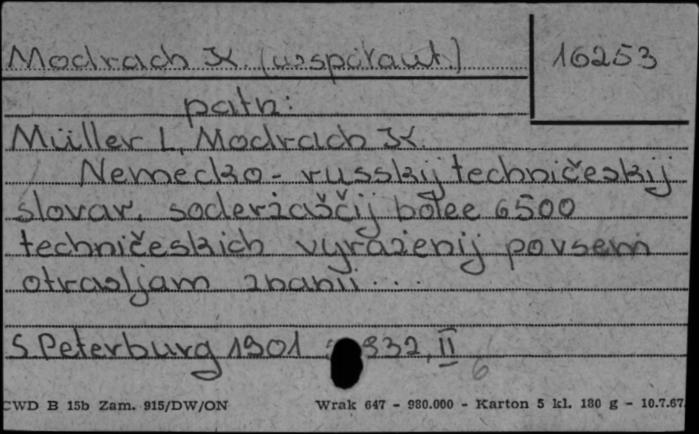 Modrach K. (współaut.)
16253
patrz:
Müller L, Modrach K.
Nemecko-russkij techničeskij
slovar, soderžaščij bolee 6500
techničeskich vyraženij po vsem
otrasljam znanii...
S Peterburg 1901 332, II
6
CWD B 15b Zam. 915/DW/ON Wrak 647 - 980.000 - Karton 5 kl. 180 g - 10.7.67.